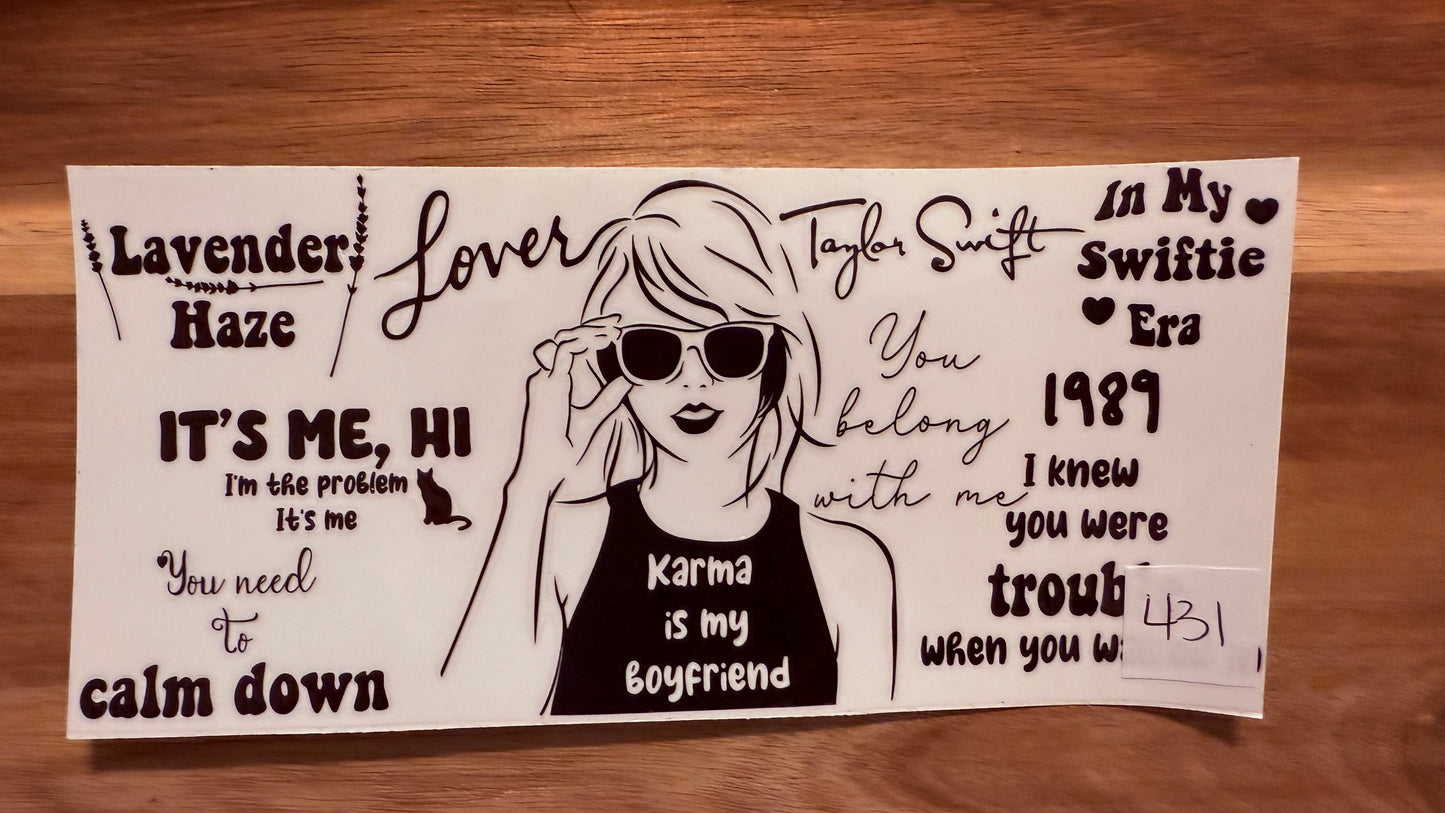 Lavender
Haze
Lover
IT'S ME, HI
I'm the problem
It's me
You need
to
calm down
Karma
is my
boyfriend
Taylor Swift
You
belong
with me
In My
Swiftie
Era
1989
I knew
you were
when you
431